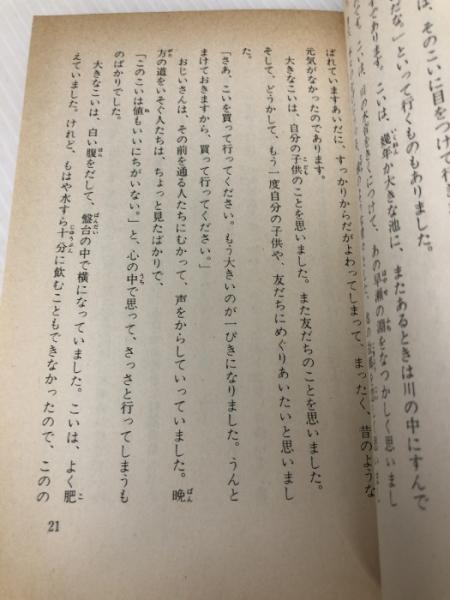 は、そのこいに目をつけて行き
だな。」といって行くものもありました。
であります。こいは、幾年か大きな池に、またあるときは川の中にすんで
水音をきくにつけて、あの早瀬の淵をなつかしく思いまし
ばれていますあいだに、すっかりからだがよわってしまって、まったく、昔のような
元気がなかったのであります。
大きなこいは、自分の子供のことを思いました。また友だちのことを思いました。
そして、どうかして、もう一度自分の子供や、友だちにめぐりあいたいと思いまし
た。
「さあ、こいを買って行ってください。もう大きいのが一ぴきになりました。うんと
まけておきますから、買って行ってください。」
おじいさんは、その前を通る人たちにむかって、声をからしていっていました。晩
方の道をいそぐ人たちは、ちょっと見たばかりで、
「このこいは値もいいにちがいない。」と、心の中で思って、さっさと行ってしまうも
のばかりでした。
大きなこいは、白い腹をだして、盤台の中で横になっていました。こいは、よく肥
えていました。けれど、もはや水すら十分に飲むこともできなかったので、このの
21